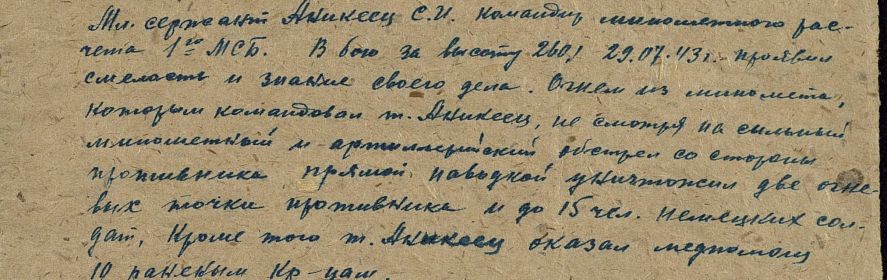 Мл. сержант Аникеец С.И. командир минометного рас-
чета 1го МСБ. В бою за высоту 260,1 29.07.43 г. проявил
смелость и знание своего дела. Огнем из миномета,
которым командовал т. Аникеец, не смотря на сильный
минометный и артиллерийский обстрел со стороны
противника прямой наводкой уничтожил две огне-
вых точки противника и до 15 чел. немецких сол-
дат, Кроме того т. Аникеец оказал медпомощ
10 раненым кр-цам.